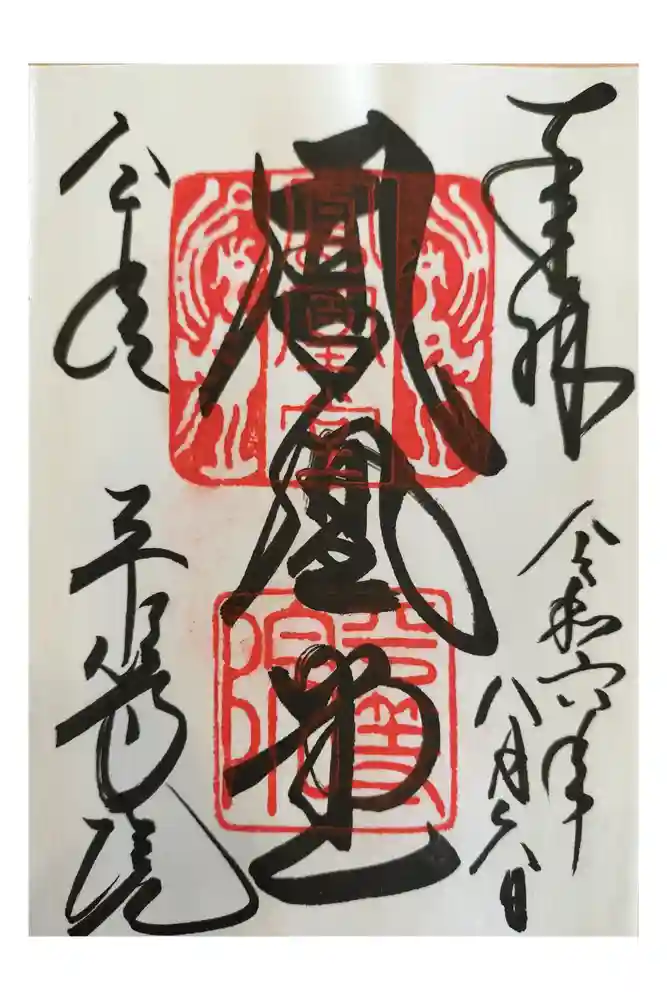 奉拝
令和六年
八月六日
鳳凰堂
平等院
鳳凰堂
平等院